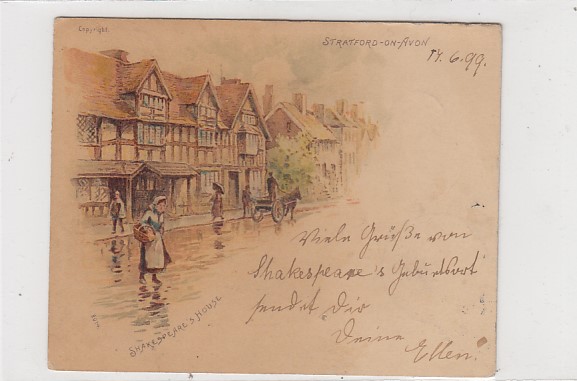 Copyright.
STRATFORD-ON-AVON
14.6.99.
Viele Grüße von
Shakespeare's Geburtsort
sendet Dir
Deine
Ellen.
SHAKESPEARE'S HOUSE